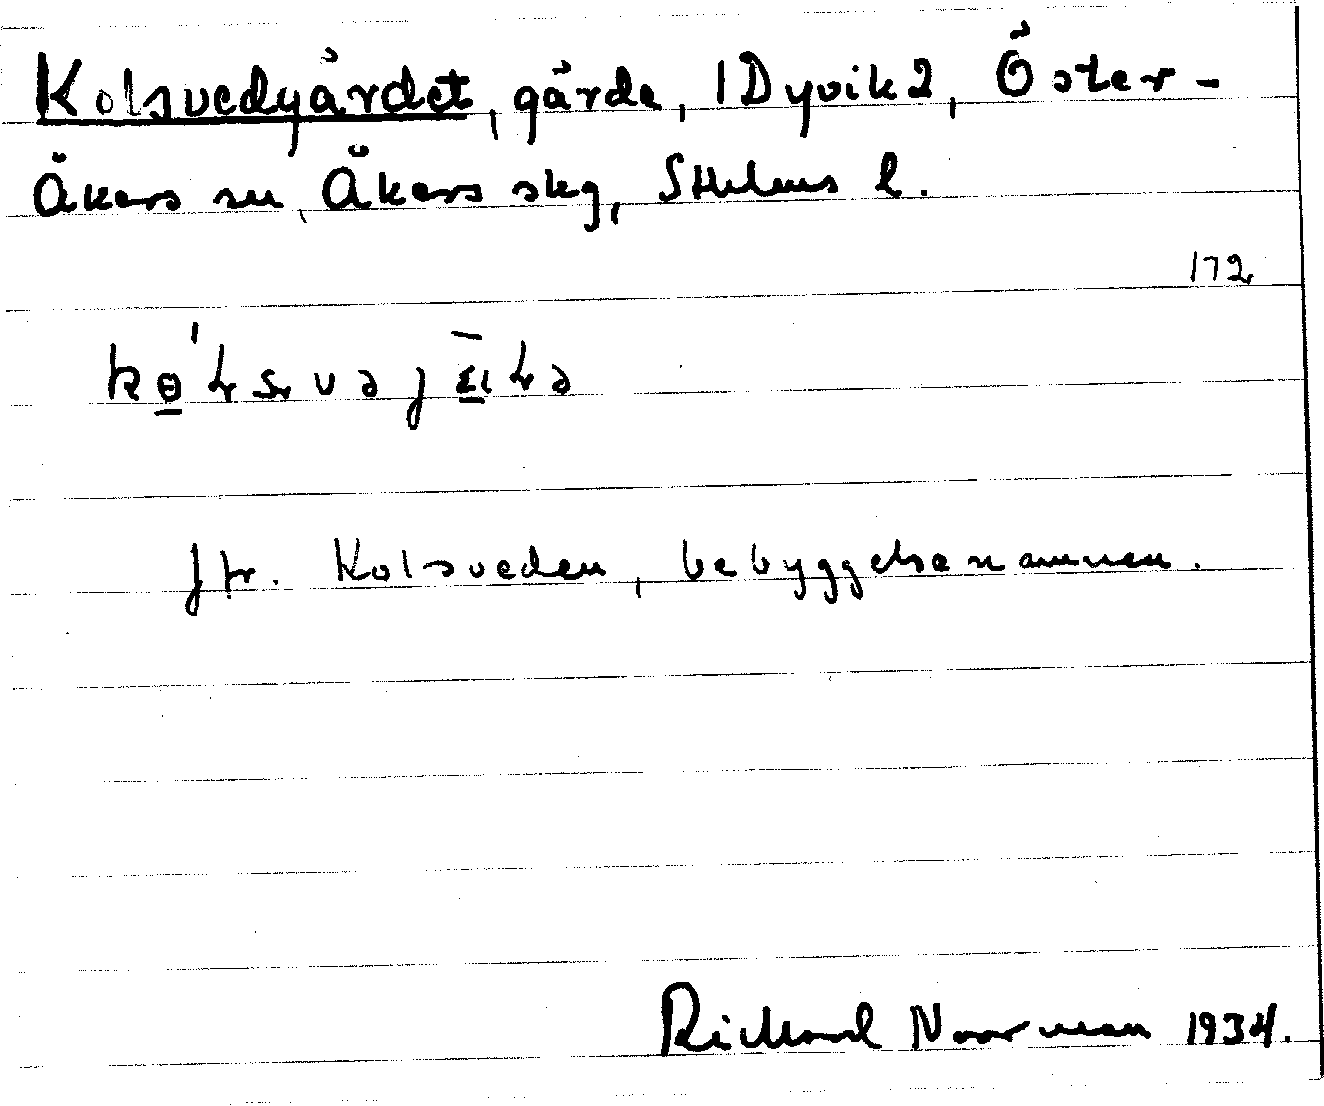 Kolsvedgärdet, gärde, 1 Dyvik 2, Öster-
Åkers sn, Åkers skg, Sthlms l.
172
jfr. Kolsveden, bebyggelsenamnen.
Richard Noorman 1934.